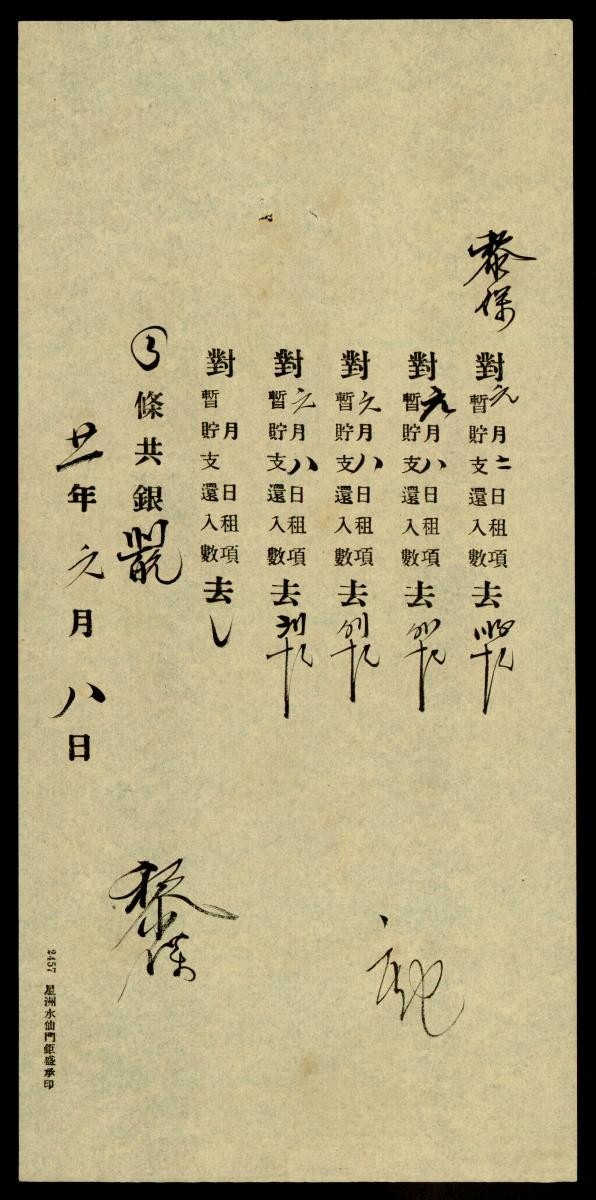 黎保
對元月二日租項暫貯支還入數去
對元月八日租項暫貯支還入數去
對元月八日租項暫貯支還入數去
對元月八日租項暫貯支還入數去
對 月 日租項暫貯支還入數去
條共銀
廿一年元月八日
黎保
2457 星洲水仙門鉅盛承印